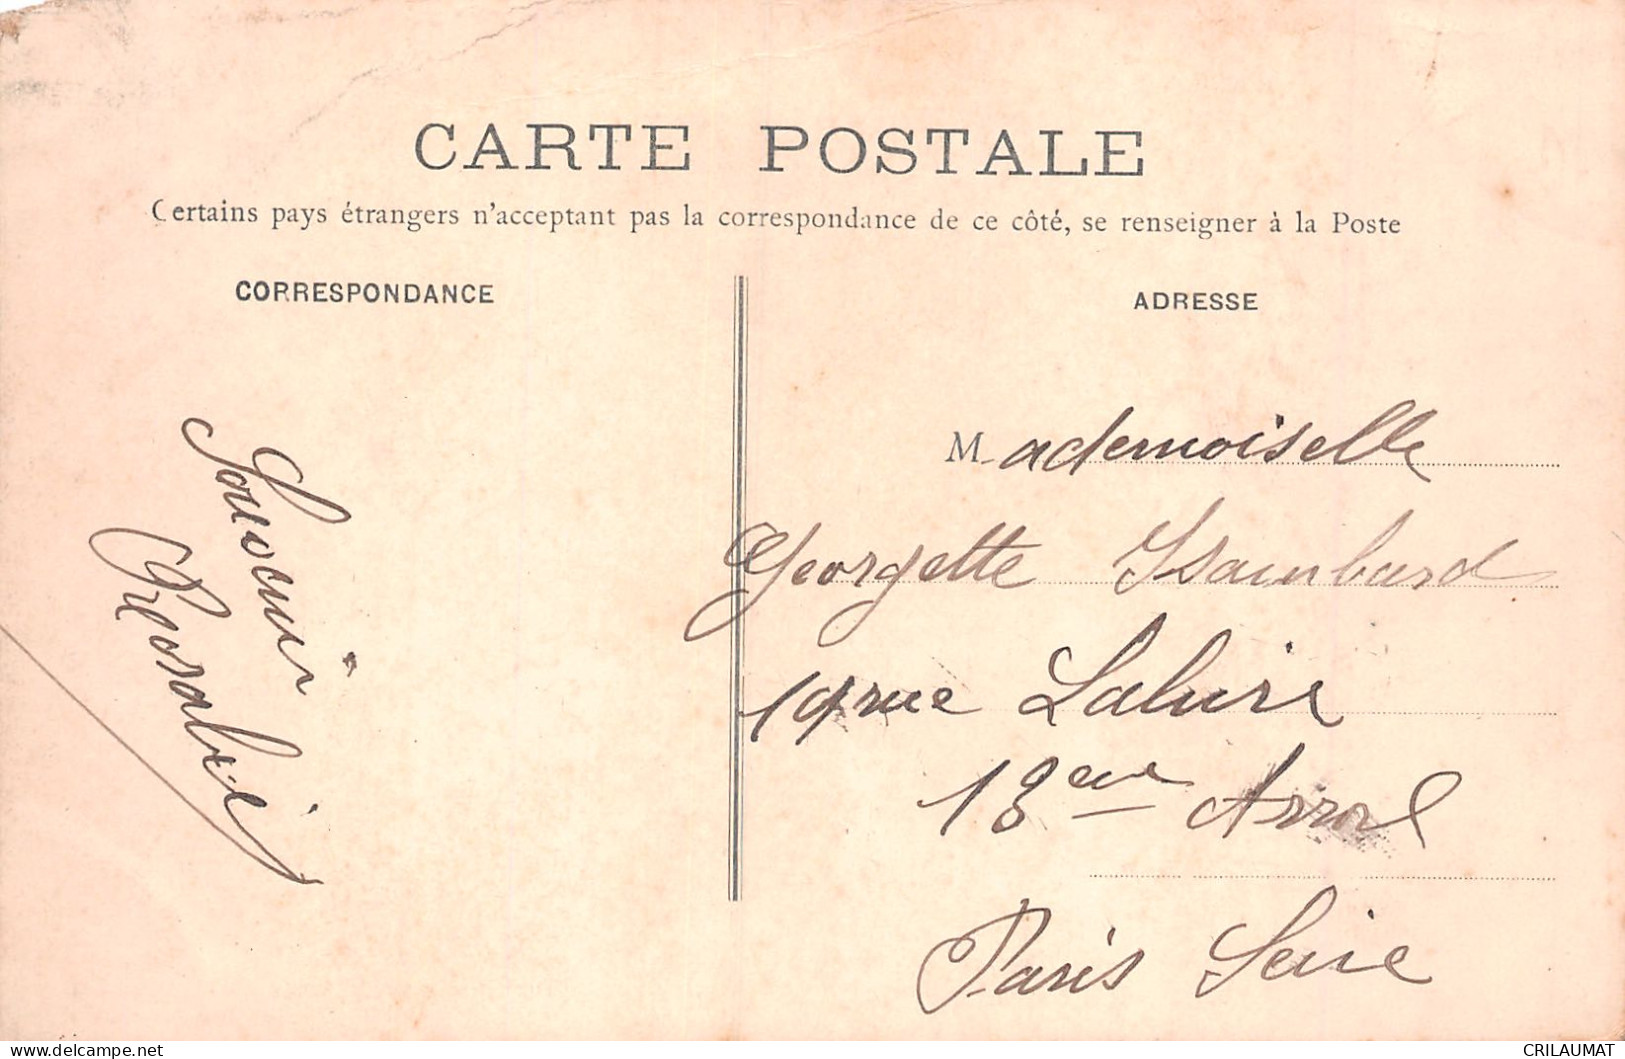 CARTE POSTALE
Certains pays étrangers n'acceptant pas la correspondance de ce côté, se renseigner à la Poste
CORRESPONDANCE
ADRESSE
Souvenir
Mademoiselle
Georgette Isambard
19 rue Lahire
13eme Arron
Paris Seine
CRILAUMAT